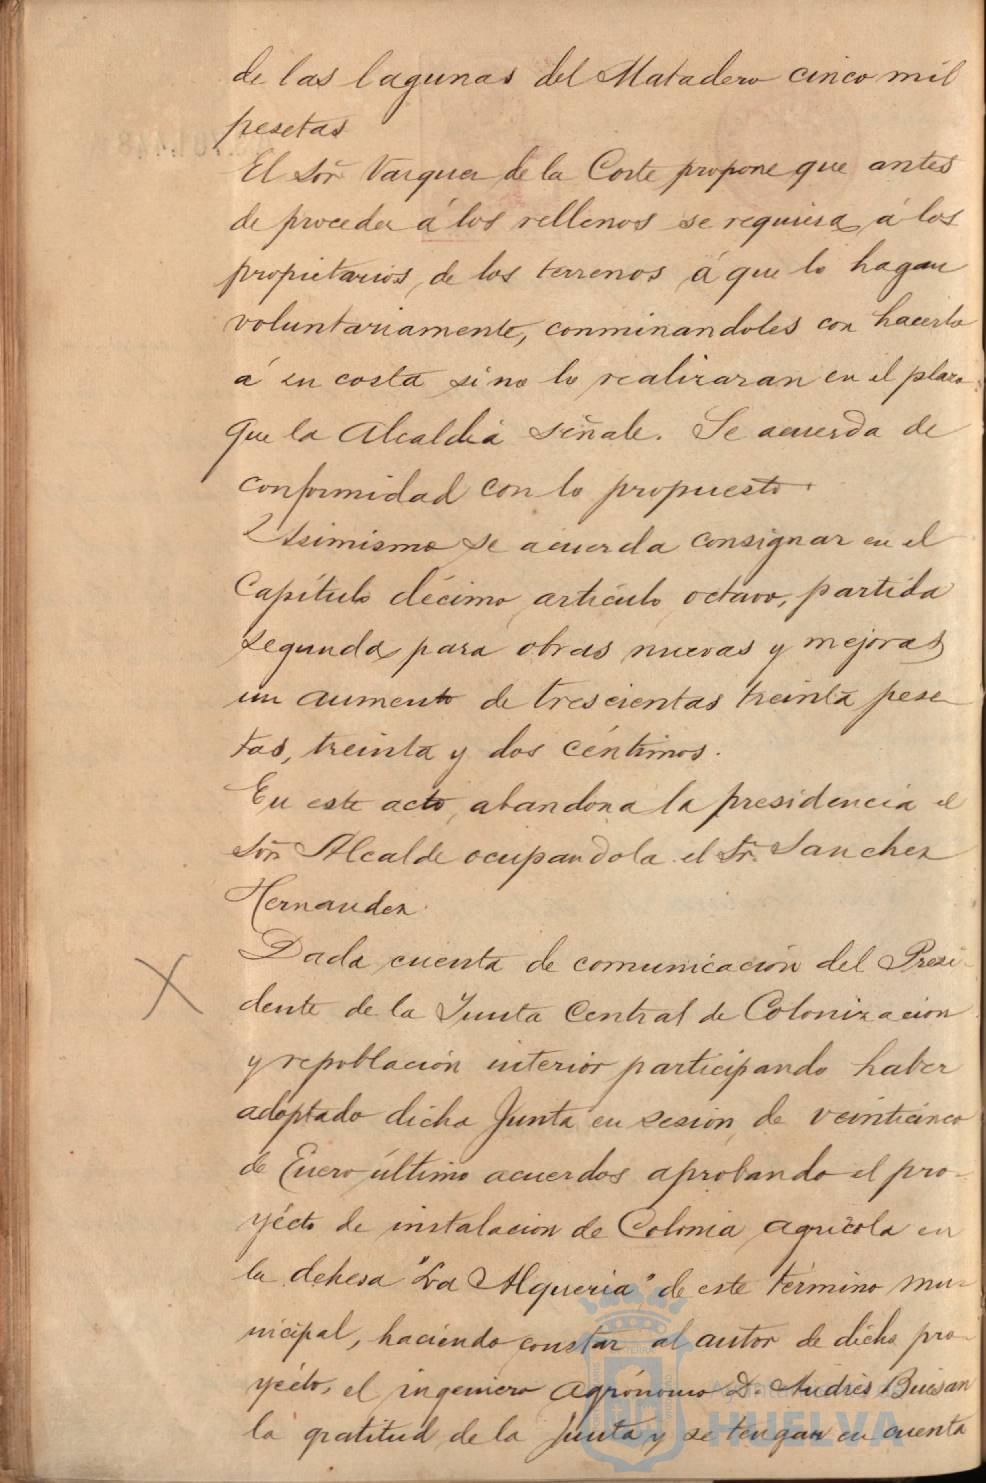 de las lagunas del Matadero cinco mil
pesetas
El Sor Vazquez de la Corte propone que antes
de proceder á los rellenos se requiera á los
propietarios, de los terrenos á que lo hagan
voluntariamente, conminandoles con hacerlo
á su costa si no lo realizaran en el plazo
que la Alcaldia señale. Se acuerda de
conformidad con lo propuesto.
Asimismo se acuerda consignar en el
Capítulo décimo, artículo octavo, partida
segunda, para obras nuevas y mejoras
un aumento de trescientas treinta pese
tas, treinta y dos céntimos.
En este acto, abandona la presidencia el
Sor Alcalde ocupandola el Sr. Sanchez
Hernandez.
Dada cuenta de comunicación del Presi-
dente de la Junta Central de Colonizacion
y repoblación interior participando haber
adoptado dicha Junta en sesion, de veinticinco
de Enero último acuerdos aprobando el pro-
yécto de instalacion de Colonia agrícola en
la dehesa "La Alqueria" de este término mu-
nicipal, haciendo constar al autor de dicho pro-
yécto, el ingeniero agrónomo D. Andrés Buisan
la gratitud de la Junta y se tengan en cuenta
Ayuntamiento de
HUELVA